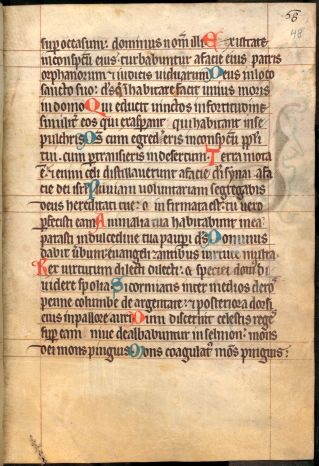 56
48
sup occasum: dominus nom illi Exultate
in conspectu eius turbabuntur a facie eius patris
orphanorum & iudicis viduarum Deus in loco
sancto suo: ds q habitare facit unius moris
in domo Qui educit vinctos in fortitudine
similit eos qui exasperant qui habitant in se
pulchris Ds cum egrederis in conspectu ppli
tui. cum ptransieris in desertum. Terra mota
e: etenim celi distillaverunt a facie di synai a fa
cie dei isrl Pluviam voluntariam segregabis
deus hereditati tue: & infirmata est: tu vero
pfecisti eam Animalia tua habitabunt in ea:
parasti in dulcedine tua paupi ds Dominus
dabit vbum evangelizantibus virtute multa
Rex virtutum dilecti dilecti: & speciei dom di
videre spolia Si dormiatis inter medios cleros
penne columbe de argentate & posteriora dorsi
eius in pallore auri Dum discernit celestis reges
sup eam nive dealbabuntur in selmon: mons
dei mons pinguis Mons coagulatus mons pinguis: